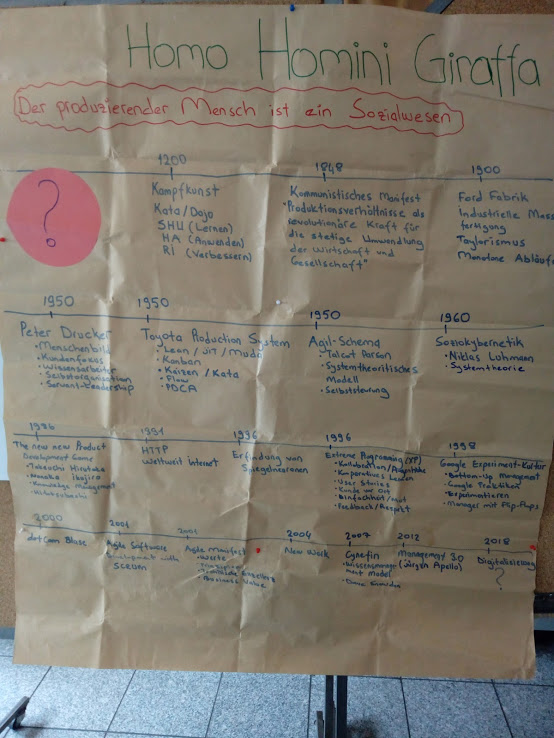 Homo Homini Giraffa
Der produzierender Mensch ist ein Sozialwesen
?
1200
Kampfkunst
Kata/Dojo
SHU (Lernen)
HA (Anwenden)
RI (Verbessern)
1848
Kommunistisches Manifest
"Produktionsverhältnisse als
revolutionäre Kraft für
die stetige Umwandlung
der Wirtschaft und
Gesellschaft"
1900
Ford Fabrik
Industrielle Mass
fertigung
Taylorismus
Monotone Abläufe
1950
Peter Drucker
• Menschenbild
• Kundenfokus
• Wissensarbeiter
• Selbstorganisation
• Servant-Leadership
1950
Toyota Production System
• Lean / JIT / Muda
• Kanban
• Kaizen / Kata
• Flow
• PDCA
1950
Agil-Schema
• Talcot Parson
• Systemtheoritisches
Modell
• Selbststeuerung
1960
Soziokybernetik
• Niklas Luhmann
• Systemtheorie
1986
The new new Product
Development Game
• Takeuchi Hirotaka
• Nonaka Ikujiro
• Knowledge Management
1991
HTTP
Weltweit internet
1996
Erfindung von
Spiegelneuronen
1996
Extreme Programming (XP)
• Kollaboration/Augenhöhe
• Kooperatives Lernen
• User Stories
• Kunde vor Ort
• Einfachheit/Mut
• Feedback/Respekt
1998
Google Experiment-Kultur
• Bottom-Up Management
• Google Praktiken
• Experimentieren
• Manager mit Flip-Flops
2000
dotCom Blase
2001
Agile Software
Development with
SCRUM
2001
Agile Manifest
• Werte
• Prinzipien
• Technische Exzellenz
• Business Value
2004
New Work
2007
Cynefin
• Wissensmanage
ment Modell
• Dave Snowden
2012
Management 3.0
(Jürgen Apello)
2018
Digitalisierung
?